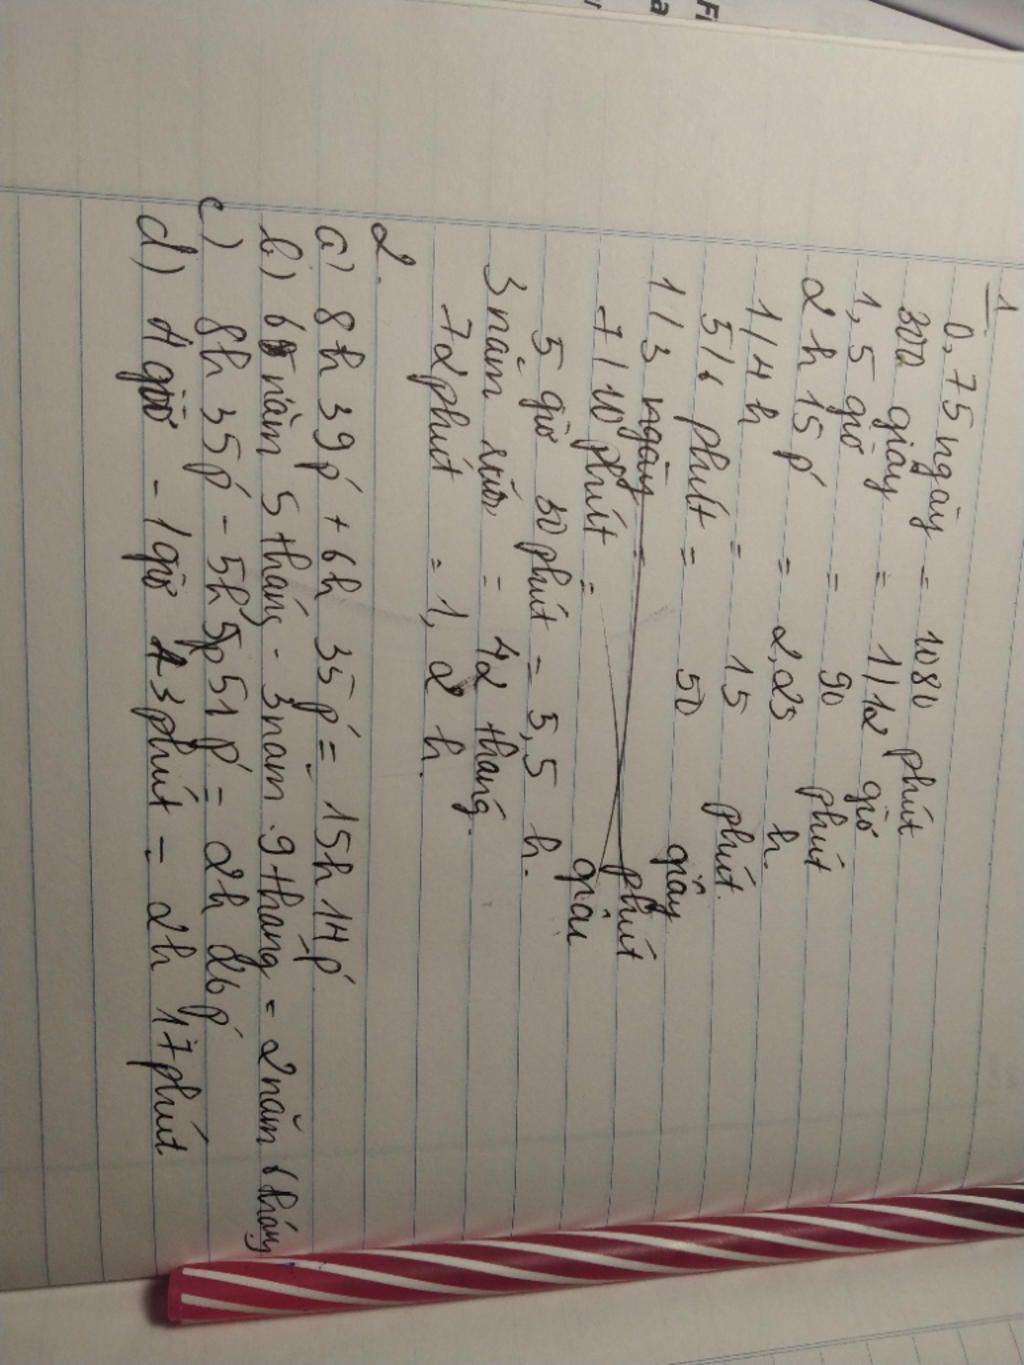 Fi
a
1
0,75 ngày = 1080 phút
300 giây = 1/12 giờ
1,5 giờ = 90 phút
2 h 15 p' = 2,25 h.
1/4 h = 15 phút.
5/6 phút = 50 giây
1/3 ngày = phút
7/10 phút = giâu
5 giờ 30 phút = 5,5 h.
3 năm rưỡi = 42 tháng.
72 phút = 1,2 h.
2.
a) 8h 39p' + 6h 35p' = 15h 14p'
b) 6 năm 5 tháng - 3 năm 9 tháng = 2 năm 6 tháng
c) 8h 35p' - 5h 51p' = 2h 26p'
d) 4 giờ - 1 giờ 43 phút = 2h 17 phút